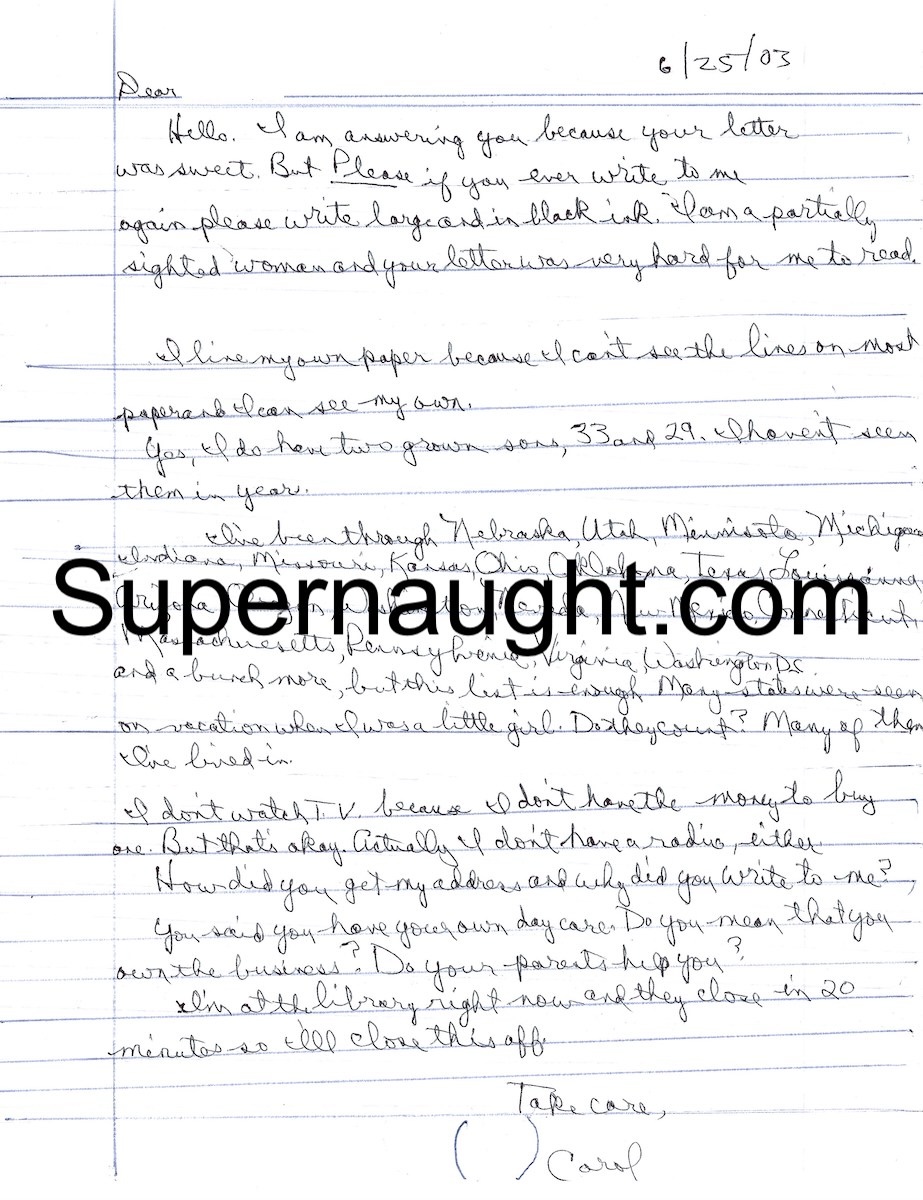 6/25/03
Dear
Hello. I am answering you because your letter
was sweet. But Please if you ever write to me
again please write large and in black ink. I am a partially
sighted woman and your letter was very hard for me to read.
I line my own paper because I can't see the lines on most
paper and I can see my own.
Yes, I do have two grown sons, 33 and 29. I haven't seen
them in year.
I've been through Nebraska, Utah, Minnisota, Michigan
Indiana, Missouri, Kansas, Ohio, Oklahoma, Texas, Louisianna
Supernaught.com
Arizona, Nevada, New Mexico, Connecticut,
Massachusetts, Pennsylvania, Virginia, Washington DC
and a bunch more, but this list is enough. Many states were seen
on vacation when I was a little girl. Do they count? Many of them
I've lived in.
I don't watch T.V. because I don't have the money to buy
one. But that's okay. Actually I don't have a radio, either.
How did you get my address and why did you write to me?
You said you have your own day care. Do you mean that you
own the business? Do your parents help you?
I'm at the library right now and they close in 20
minutes so I'll close this off.
Take care,
( ) Carol